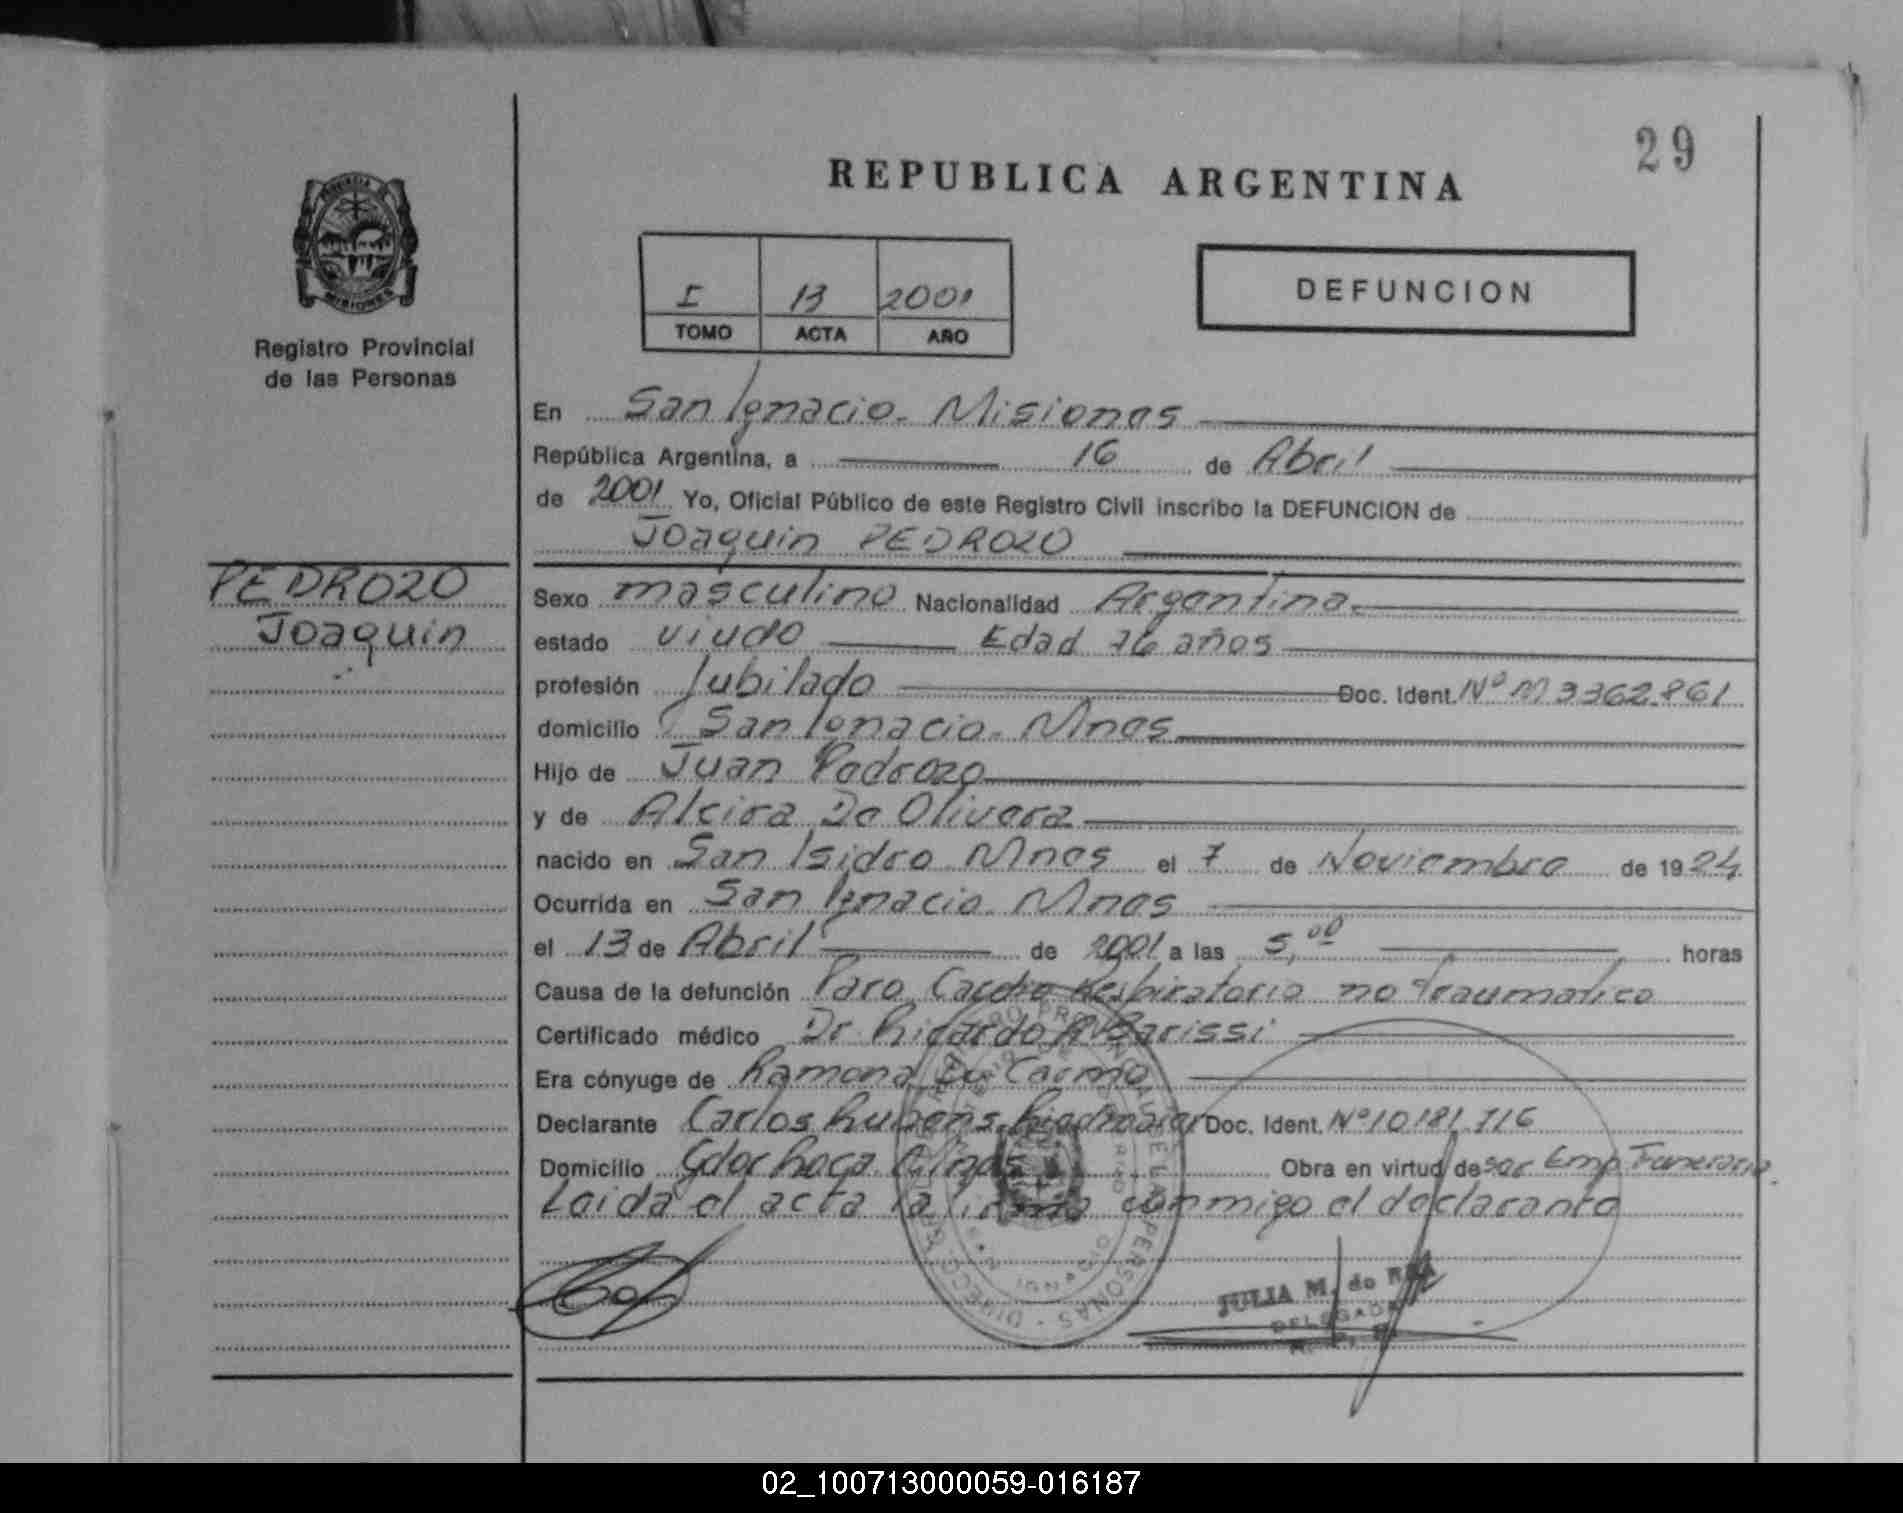 29
REPUBLICA ARGENTINA
PROVINCIA DE
MISIONES
Registro Provincial
de las Personas
I 13 2001
TOMO ACTA AÑO
DEFUNCION
En San Ignacio - Misiones
República Argentina, a 16 de Abril
de 2001 Yo, Oficial Público de este Registro Civil inscribo la DEFUNCION de
Joaquin PEDROZO
PEDROZO
Joaquin
Sexo masculino Nacionalidad Argentina.
estado viudo Edad 76 años
profesión Jubilado Doc. Ident. Nº M 3362.861
domicilio San Ignacio - Mnes
Hijo de Juan Pedrozo
y de Alcira De Olivera
nacido en San Isidro Mnes el 7 de Noviembre de 1924
Ocurrida en San Ignacio - Mnes
el 13 de Abril de 2001 a las 5,00 horas
Causa de la defunción Paro Cardio Respiratorio no traumatico
Certificado médico Dr Ricardo A Parissi
Era cónyuge de Ramona Do Carmo
Declarante Carlos Rubens Doc. Ident. Nº 10181.716
Domicilio Gdor Roca Mnes Obra en virtud de ser Emp. Funeraria.
Leida el acta la firma conmigo el declarante
JULIA M. de
DELEGADA
R. P. P.
02_100713000059-016187